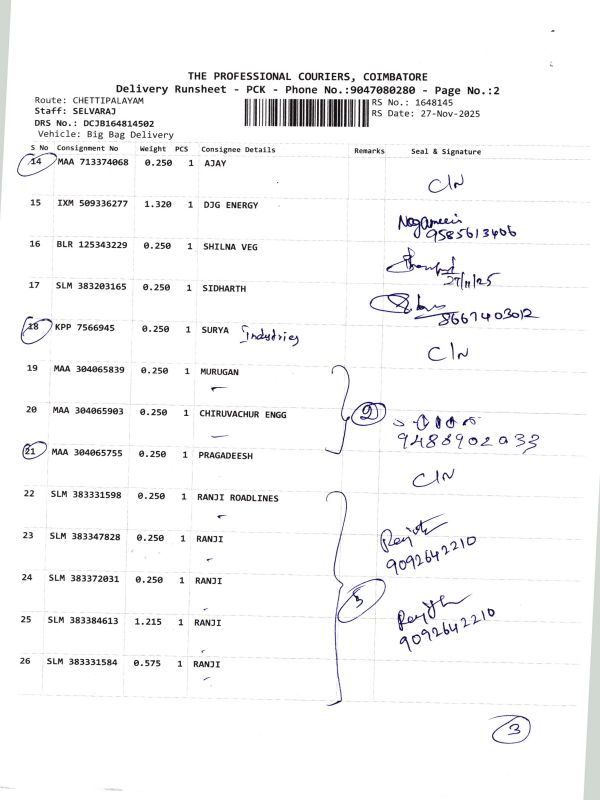 THE PROFESSIONAL COURIERS, COIMBATORE
Delivery Runsheet - PCK - Phone No.:9047080280 - Page No.:2
Route: CHETTIPALAYAM RS No.: 1648145
Staff: SELVARAJ RS Date: 27-Nov-2025
DRS No.: DCJB164814502
Vehicle: Big Bag Delivery
S No Consignment No Weight PCS Consignee Details Remarks Seal & Signature
14 MAA 713374068 0.250 1 AJAY
C/N
15 IXM 509336277 1.320 1 DJG ENERGY
9585613406
16 BLR 125343229 0.250 1 SHILNA VEG
27/11/25
17 SLM 383203165 0.250 1 SIDHARTH
8667403012
18 KPP 7566945 0.250 1 SURYA Industries
C/N
19 MAA 304065839 0.250 1 MURUGAN
2
20 MAA 304065903 0.250 1 CHIRUVACHUR ENGG
21 MAA 304065755 0.250 1 PRAGADEESH
C/N
22 SLM 383331598 0.250 1 RANJI ROADLINES
23 SLM 383347828 0.250 1 RANJI
9092642210
24 SLM 383372031 0.250 1 RANJI
25 SLM 383384613 1.215 1 RANJI
9092642210
26 SLM 383331584 0.575 1 RANJI
3